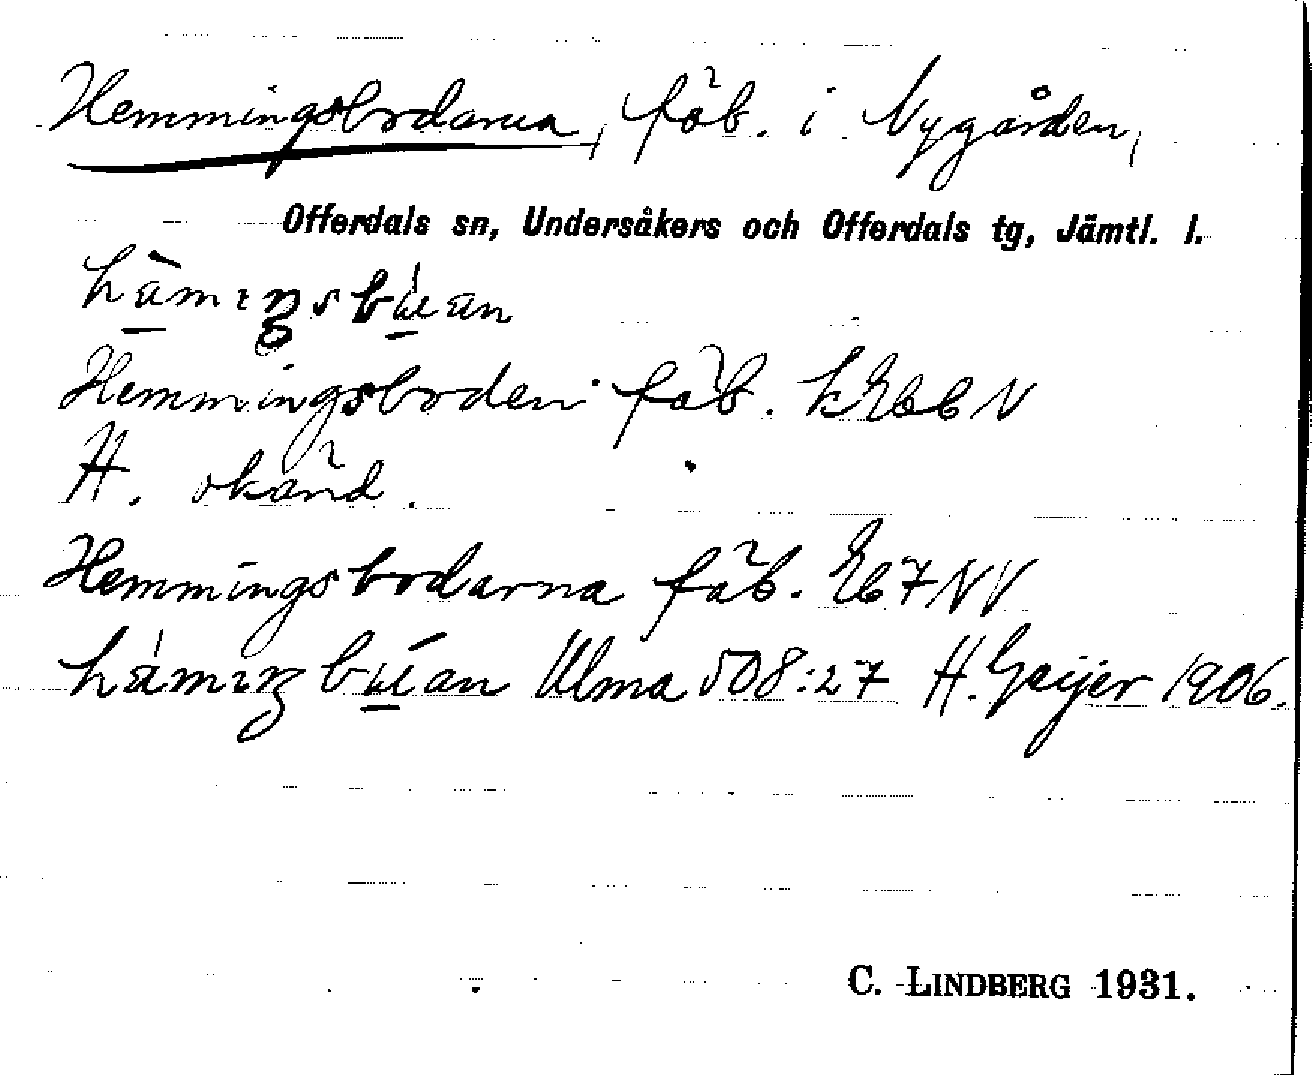 Hemmingsbodarna, fäb. i Nygården,
Offerdals sn, Undersåkers och Offerdals tg, Jämtl. l.
hàmıŋsbúan
Hemmingsboden fäb. kEbbN
H. okänd.
Hemmingsbodarna fäb. Eb7NV
hámıŋbúan Ulma 508:27 H. Geijer 1906.
C. LINDBERG 1931.